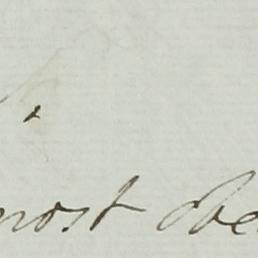 most Obe